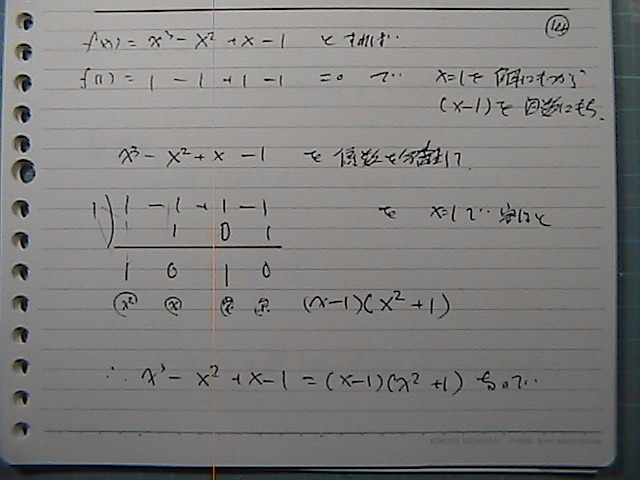 14
f(x) = x³ - x² + x - 1 とすれば…
f(1) = 1 - 1 + 1 - 1 = 0 で… x=1を解にもつから
(x-1)を因数にもち、
x³ - x² + x - 1 を係数を分離して、
1) 1 - 1 + 1 - 1 を x=1で…
1 0 1
1 0 1 0
x² x (x-1)(x²+1)
∴ x³ - x² + x - 1 = (x-1)(x²+1) なので…